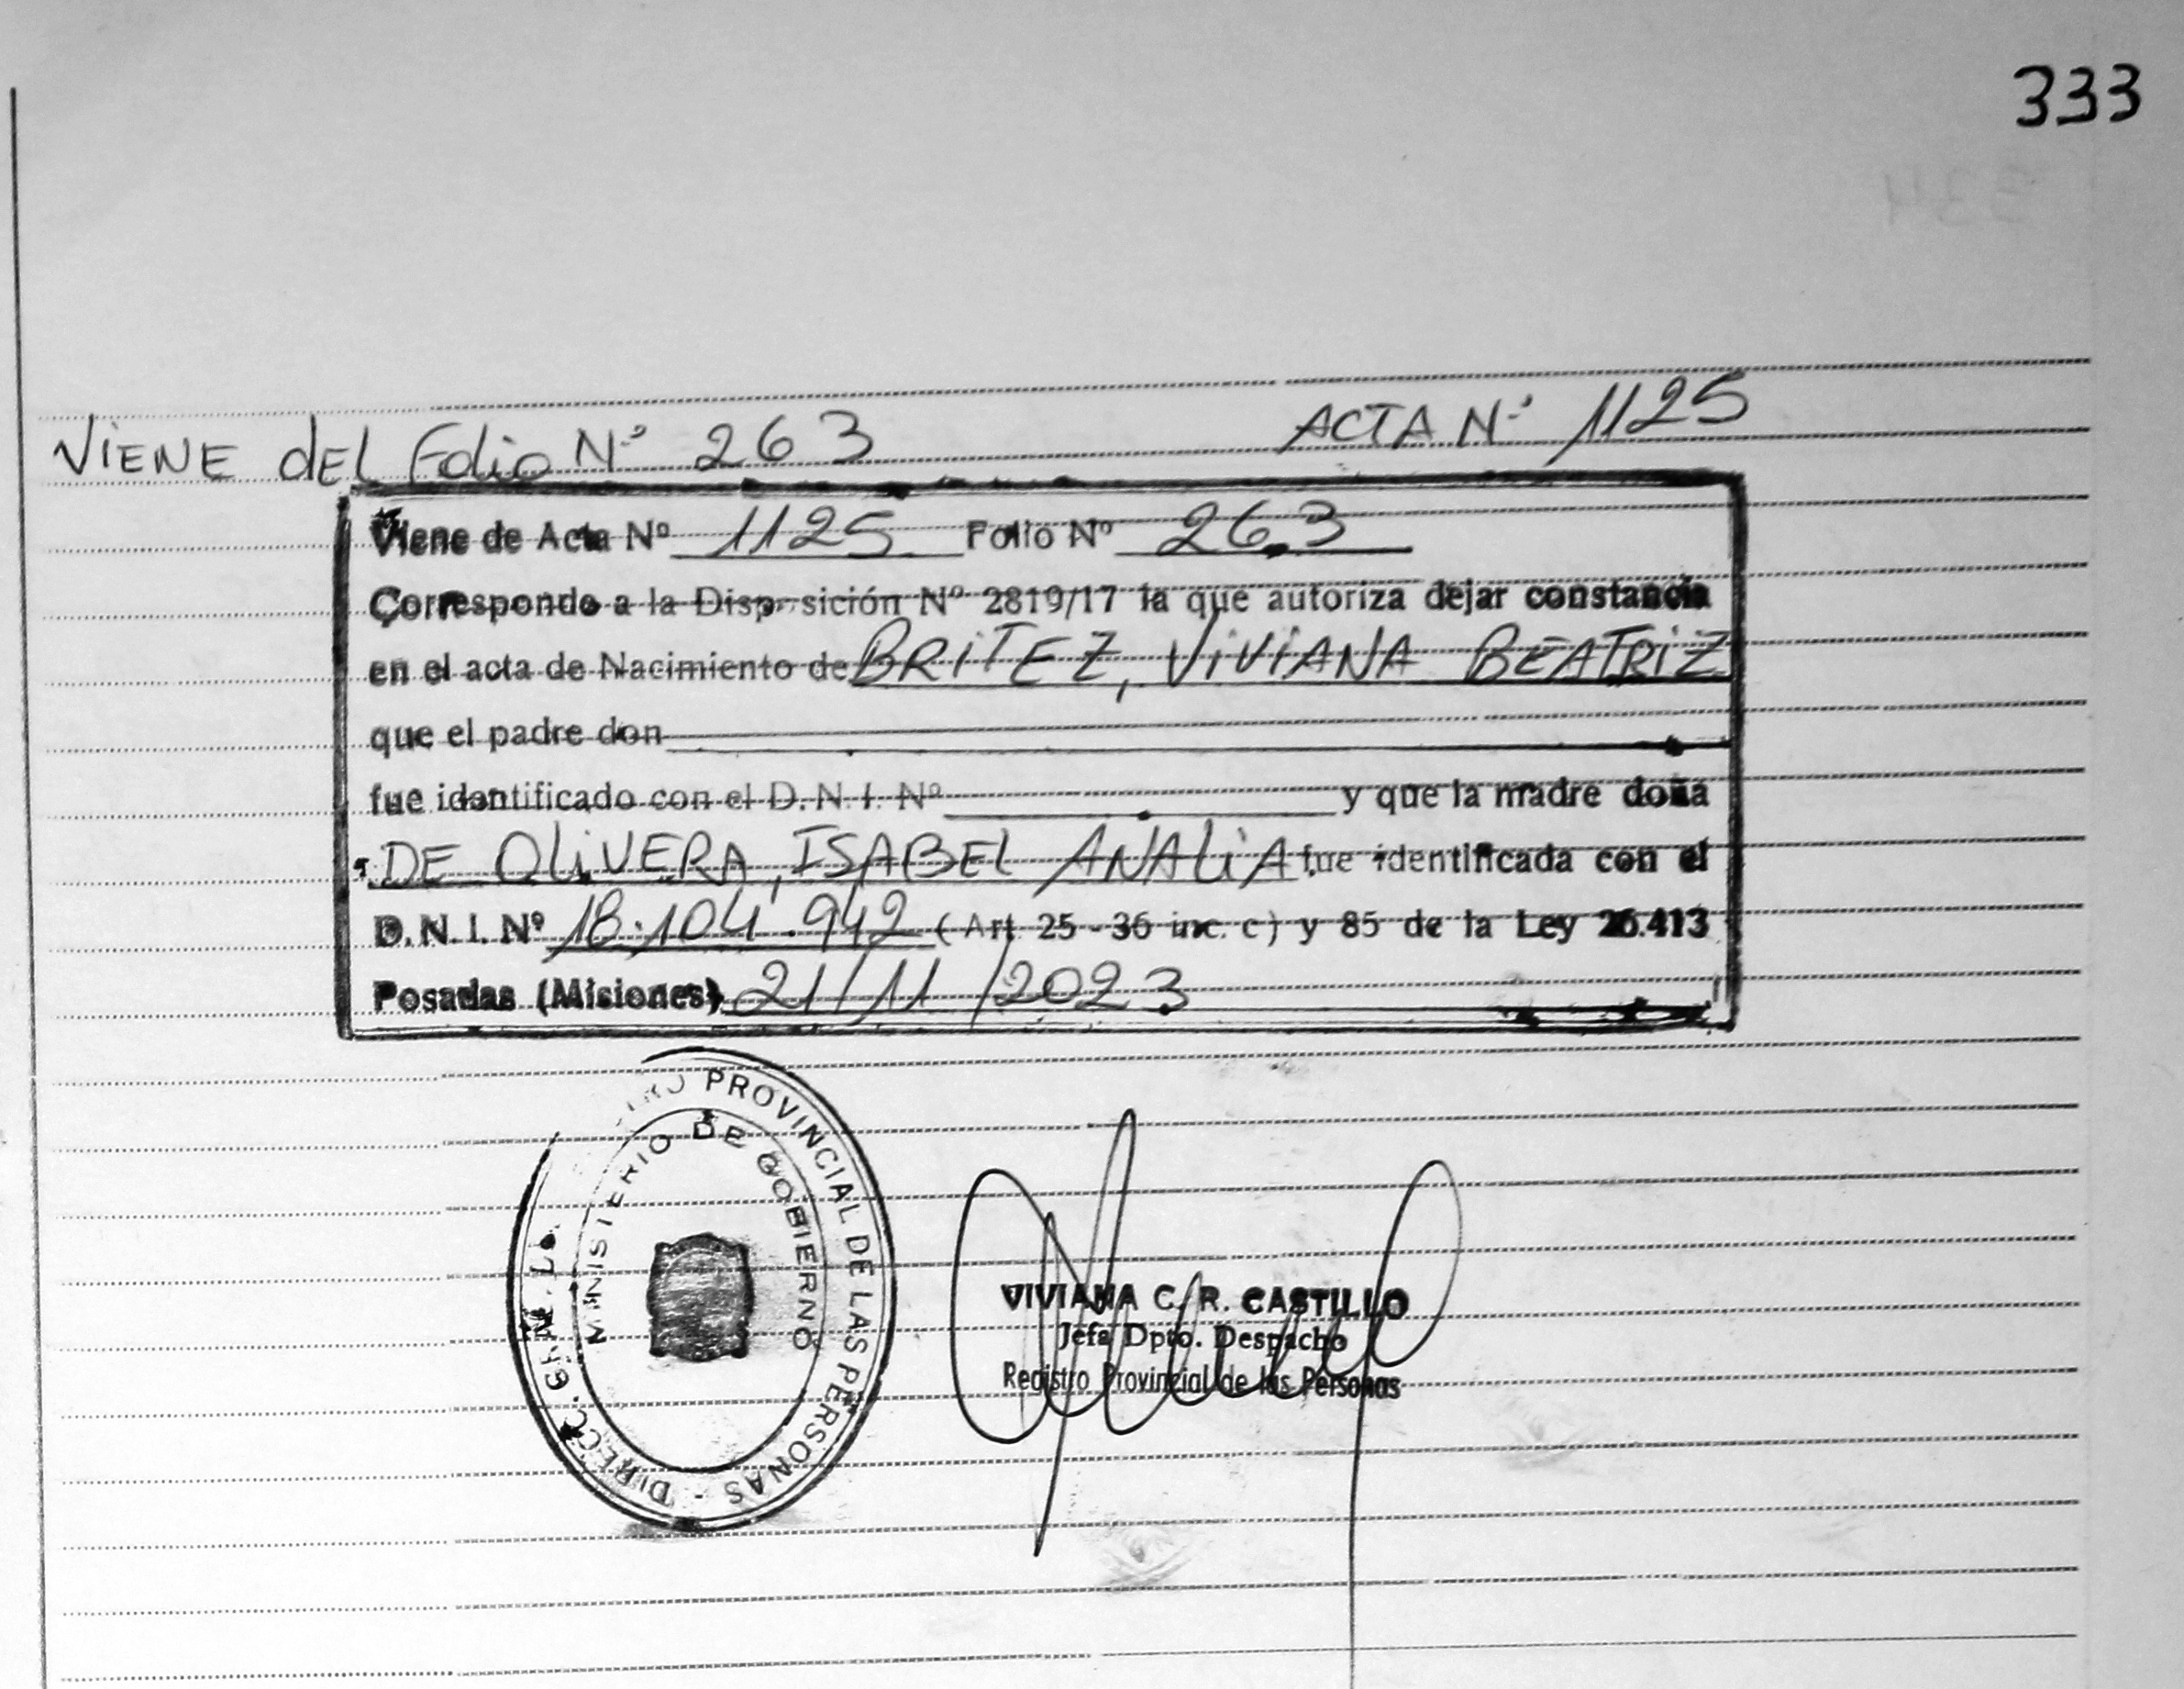 333
VIENE dEL Folio Nº 263 ACTA Nº 1125
Viene de Acta Nº 1125 Folio Nº 263
Corresponde a la Disposición Nº 2819/17 la que autoriza dejar constancia
en el acta de Nacimiento de BRITEZ, VIVIANA BEATRIZ
que el padre don
fue identificado con el D.N.I. Nº y que la madre doña
DE OLIVERA, ISABEL ANALIA fue identificada con el
D.N.I. Nº 18.104.942 (Art. 25 - 36 inc. c) y 85 de la Ley 26.413
Posadas (Misiones) 21/11/2023
PROVINCIAL DE LAS PERSONAS -
MINISTERIO DE GOBIERNO
VIVIANA C. R. CASTILLO
Jefa Dpto. Despacho
Registro Provincial de las Personas